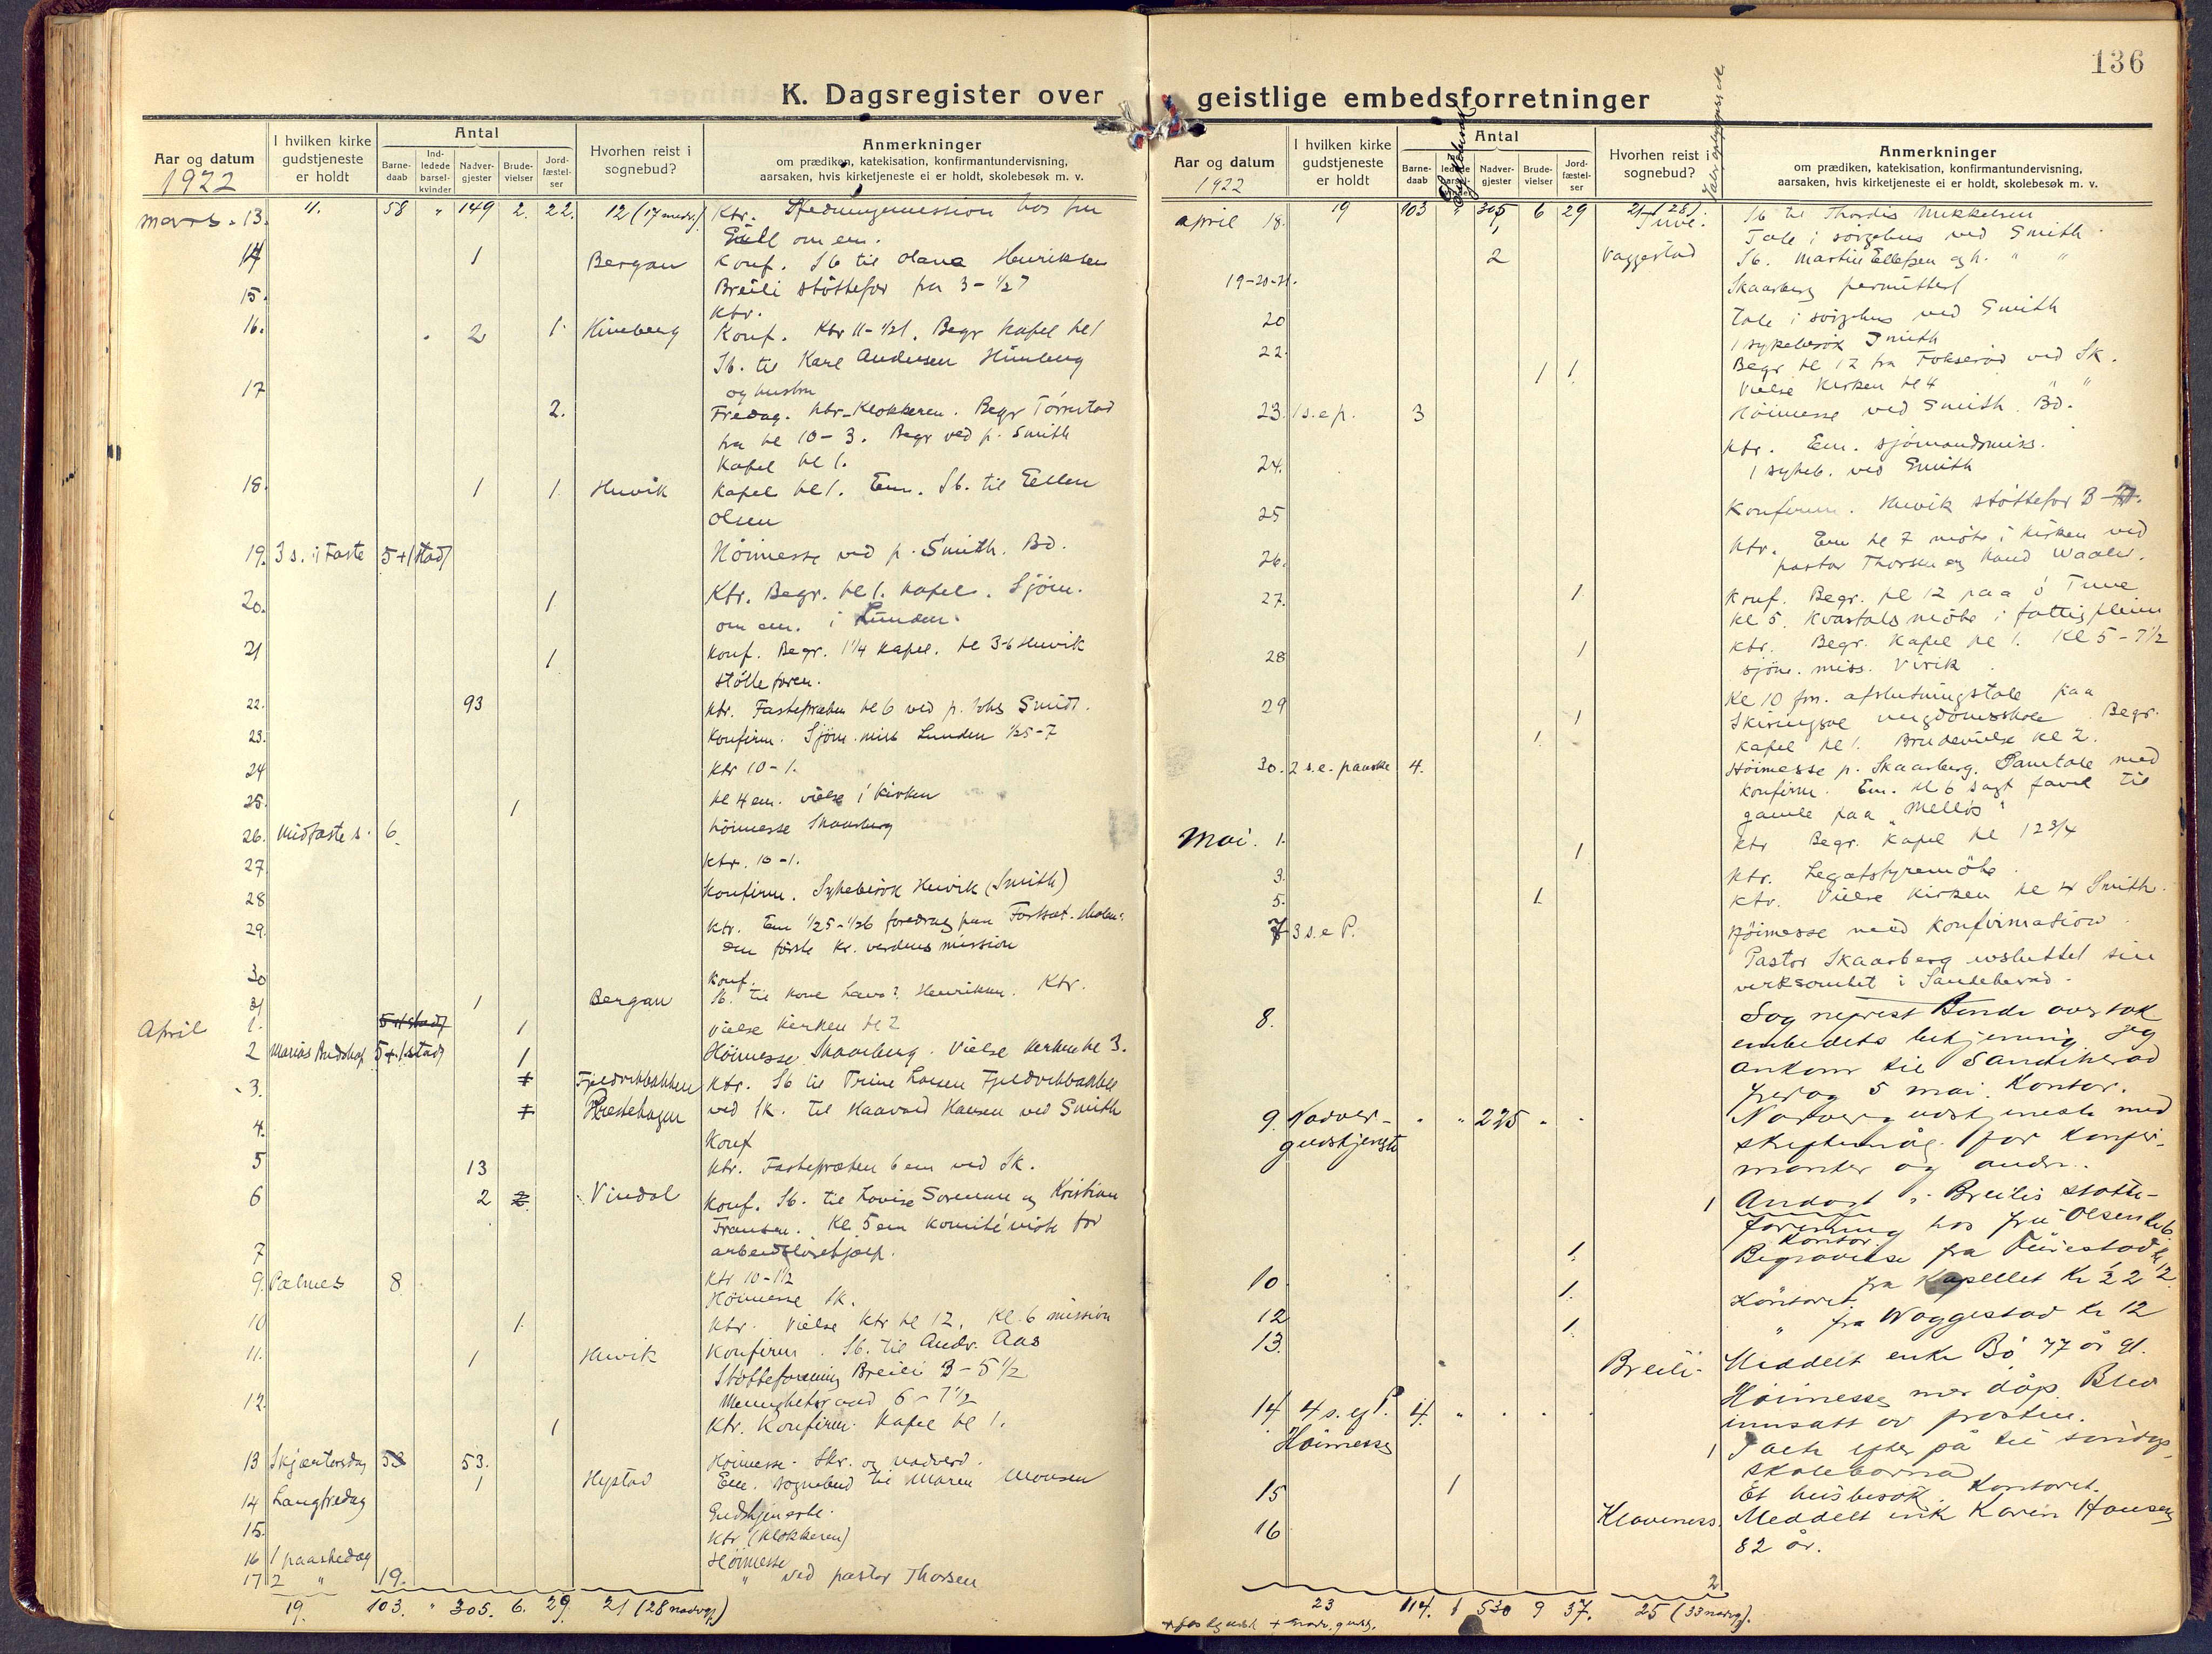 136
K. Dagsregister over geistlige embedsforretninger
Aar og datum
1922
I hvilken kirke gudstjeneste er holdt
Antal
Barne-daab
Ind-ledede barsel-kvinder
Nadver-gjester
Brude-vielser
Jord-fæstel-ser
Hvorhen reist i sognebud?
Anmerkninger
om prædiken, katekisation, konfirmantundervisning,
aarsaken, hvis kirketjeneste ei er holdt, skolebesøk m. v.
mars. 13. 11. 58 " 149 2. 22. 12 (17 nadv.) Ktr. Hedningemission hos fru
om em.
14 1 Bergan Konf. Sb til Olana Henriksen
Breili støttefor fra 3 - ½7
15. Ktr.
16. 2 1. Himberg Konf. Ktr 11-½1. Begr kapel kl 1
Sb. til Karl Andersen Himberg
og hustru
17 2. Fredag. Ktr-Klokkeren. Begr Tørrestad
fra kl 10-3. Begr ved p. Smith
Kapel kl 1.
18. 1 1. Huvik Kapel kl 1. Em. Sb. til Ellen
Olsen
19. 3 s. i Faste 5+(1stad) Höimesse ved p. Smith. Bd.
20. 1 Ktr. Begr. kl 1. kapel. Sjöm.
om em. i Lunden.
21 1 Konf. Begr. 1¼ kapel. kl 3-6 Huvik
støtteforen.
22. 93 Ktr. Fastepræken kl 6 ved p. Smith.
23. Konfirm. Sjöm. miss Lunden ½5-7
24 Ktr 10-1.
25. 1 kl 4 em. vielse i kirken
26. Midfaste s. 6. höimesse Skaarberg
27 Ktr. 10-1.
28 Konfirm. Sykebesök Huvik (Smith)
29. Ktr. Em ½5-½6 foredrag paa
Den første kr. verdens mission
30 Konf.
31 1 Bergan Sb. til kone Henriksen. Ktr.
April 1. 5+(1stad) 1 Vielse kirken kl 2
2 Marias Budskap 5+(1stad) 1 Höimesse Skaarberg. Vielse kirken kl 3.
3. 1 Fjeldvikbakken Ktr. Sb til Trine Larsen Fjeldvikbakken
1 Prestehagen ved Sk. til Haavard Hansen ved Smith
4. Konf
5 13 Ktr. Fastepræken 6 em ved Sk.
6 2 2 Vindal Konf. Sb. til Lovise Sorensen og Kristian
Fransen. Kl. 5 em komitémöte for
arbeidslöshjælp.
7 Ktr 10-1½
9. Palmes 8 Höimesse Sk.
10 1. Ktr. Vielse ktr kl 12. Kl. 6 mission
11. 1 Huvik Konfirm. Sb. til Andr. Aas
Støtteforening Breili 3-5½
Menighetsraad 6-7½
12. 1 Ktr. Konfirm. Kapel kl 1.
13 Skjærtorsdag 53 53. Höimesse. Skr. og nadverd.
1 Hystad Em. sognebud til Maren Monsen
14 Langfredag Gudstjeneste.
15. Ktr (Klokkeren)
16 1 paaskedag Höimesse
17 2 " 19. " ved pastor Thorsen
19. 103. " 305. 6. 29. 21 (28 nadvg.)
Aar og datum
1922
I hvilken kirke gudstjeneste er holdt
Antal
Barne-daab
Nadver-gjester
Brude-vielser
Jord-fæstel-ser
Hvorhen reist i sognebud?
Anmerkninger
om prædiken, katekisation, konfirmantundervisning,
aarsaken, hvis kirketjeneste ei er holdt, skolebesøk m. v.
april 18. 19 103 " 305 6 29 21 (28) Sb til Thordis Mikkelsen
1 Tuve. Tale i sörgehus ved Smith.
2 Vaggestad Sb. Martin Ellefsen og h. " "
19-20-21. Skaarberg permittert
20 Tale i sörgehus ved Smith
1 sykebesök Smith
22. 1 1. Begr kl 12 fra Fokserød ved Sk.
Vielse kirken kl 4 " "
23. 1 s.e.p. 3 Höimesse ved Smith. Bd.
24. Ktr. Em. sjömandsmiss.
1 sykeb. ved Smith
25 Konfirm. Huvik støttefor 3-
26. Ktr. Em kl 7 möte i kirken ved
pastor Thorsen og kand Waaler.
27. 1. Konf. Begr. kl 12 paa ö Tuve
kl 5. Kvartalsmöte i fattigpleien
28 1 Ktr. Begr. Kapel kl 1. Kl 5-7½
sjöm. miss. Virik
29 1 Kl 10 fm. afslutningstale paa
Skiringssal ungdomsskole. Begr.
1. kapel kl 1. Brudevielse kl 2.
30. 2 s.e. paaske 4. Höimesse p. Skaarberg. Samtale med
konfirm. Em. kl 6 sagt farvel til
gamle paa "Melløs"
Mai. 1. 1 Ktr Begr. Kapel kl 12¾
3. Ktr. Legatstyremöte.
5. 1. Ktr. Vielse kirken kl 4 Smith.
7 3 s.e P. Höimesse med konfirmation.
Pastor Skaarberg avsluttet sin
verksomhet i Sandeherad.
8. Sogneprest Sende overtok
embedets betjening. Jeg
ankom til Sandeherad
fredag 5 mai. Kontor.
9. Nadver-gudstjeneste " 225 " " Nadvergudstjeneste med
skriftemål for konfir-
manter og andre.
1 Andagt i Breilis støtte-
forening hos fru Olsen kl 6
Kontor.
1. Begravelse fra kl 12
10 1. fra kapellet kl ½ 2
Kontoret
12 1. " fra Vaggestad kl 12
13. Breili Meddelt enke Bö 77 år gl.
14 4 s. e. P. 4 " " " " Höimesse med dåp. Blev
Höimesse innsatt av prosten.
1 Talte efterpå til söndags-
skolebarna
15 1 Et husbesök. Kontoret.
16 Klaveness. Meddelt enke Karen Hansen
82 år.
2
23 114. 1 530 9 37. 25 (33 nadvg).